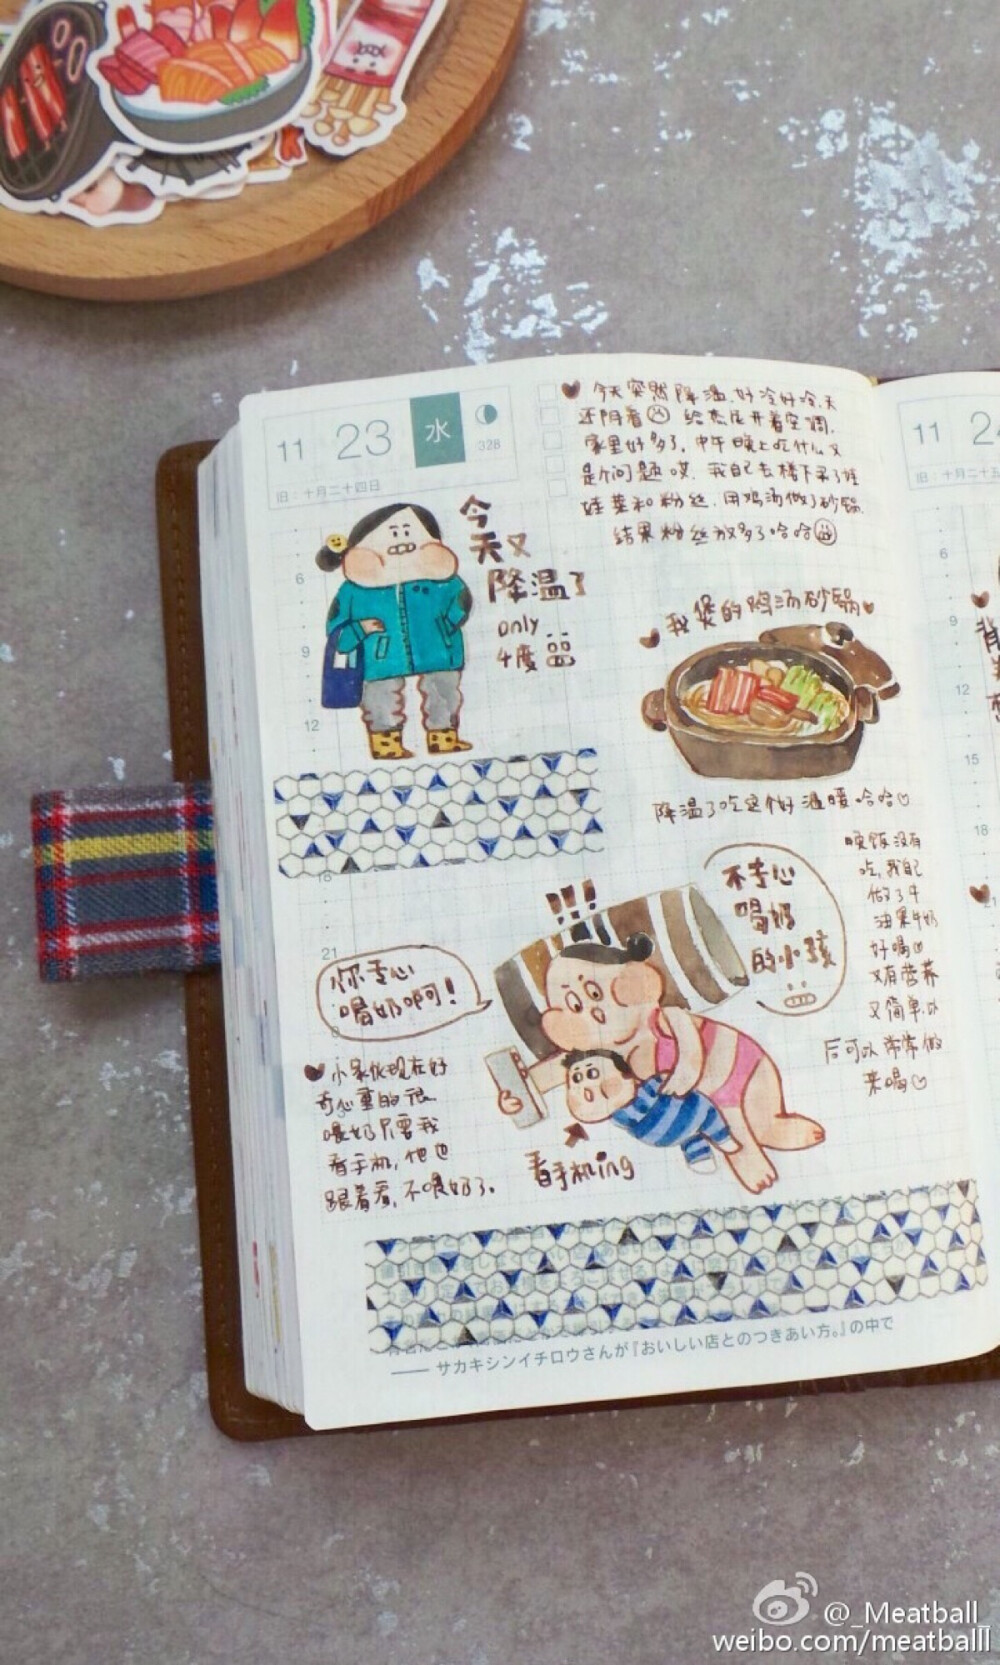 11
23
水
328
旧：十月二十四日
今天突然降温,好冷好冷,天
还阴着 给杰尼开着空调,
家里好多了,中午晚上吃什么又
是个问题哎,我自己去楼下买了娃
娃菜和粉丝,用鸡汤做了砂锅,
结果粉丝放多了哈哈
今
天又
降温了
only
4度
我煲的鸡汤砂锅
降温了吃这个好温暖哈哈
晚饭没有
吃,我自己
做了牛
油果牛奶
好喝
又有营养
又简单,以
后可以常常做
来喝
6
9
12
18
21
!!!
不专心
喝奶
的小孩
你专心
喝奶啊啊!
小家伙现在好
奇心重的很
喂奶只要我
看手机,他也
跟着看,不喂奶了.
看手机ing
—— サカキシンイチロウさんが『おいしい店とのつきあい方。』の中で
11
24
旧：十月二十五
6
9
12
15
18
21
背
@_Meatball_
weibo.com/meatballl